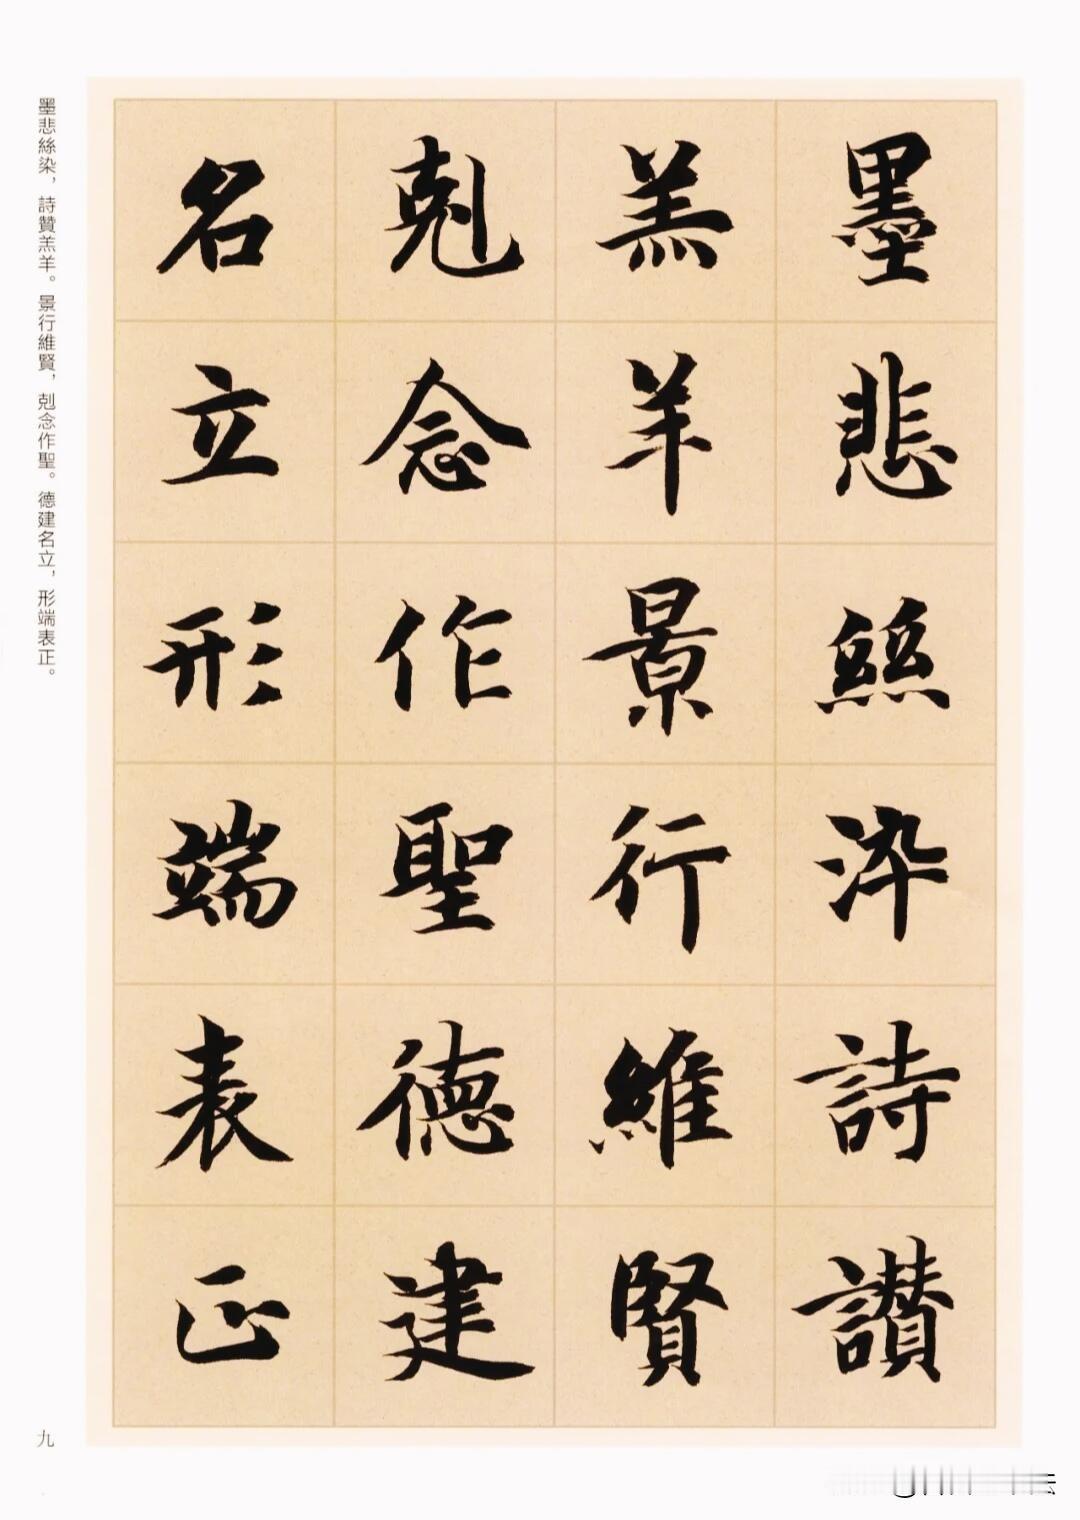 墨悲絲染詩讃
羔羊景行維賢
剋念作聖德建
名立形端表正
墨悲絲染，詩贊羔羊。景行維賢，剋念作聖。德建名立，形端表正。
九